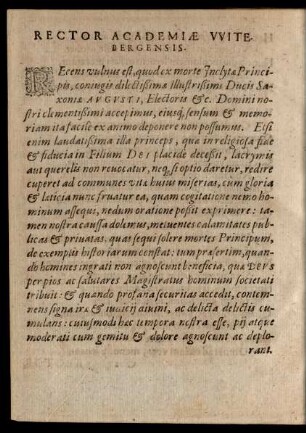 RECTOR ACADEMIÆ VVITE-
BERGENSIS.
REcens vulnus est, quod ex morte Inclytæ Princi-
pis, coniugis dilectissimæ Illustrissimi Ducis Sa-
xoniæ AVGVSTI, Electoris &c. Domini no-
stri clementissimi accepimus, eiusq; sensum & memo-
riam ita facile ex animo deponere non possumus. Etsi
enim laudatissima illa princeps, quæ in religiosa fide
& fiducia in Filium DEI placidè decessit, lacrymis
aut querelis non reuocatur, neq; si optio daretur, redire
cuperet ad communes vitæ huius miserias, cum gloria
& læticia nunc fruatur ea, quam cogitatione nemo ho-
minum assequi, nedum oratione possit exprimere: ta-
men nostra caussa dolemus, metuentes calamitates pub-
licas & priuatas, quæ sequi solere mortes Principum,
de exemplis historiarum constat: tum præsertim, quan-
do homines ingrati non agnoscunt beneficia, quæ DEVS
per pios ac salutares Magistratus hominum societati
tribuit: & quando profana securitas accedit, contem-
nens signa iræ & iudicij diuini, ac delicta delictis cu-
mulans: cuiusmodi hæc tempora nostra esse, pij atque
moderati cum gemitu & dolore agnoscunt ac deplo-
rant.